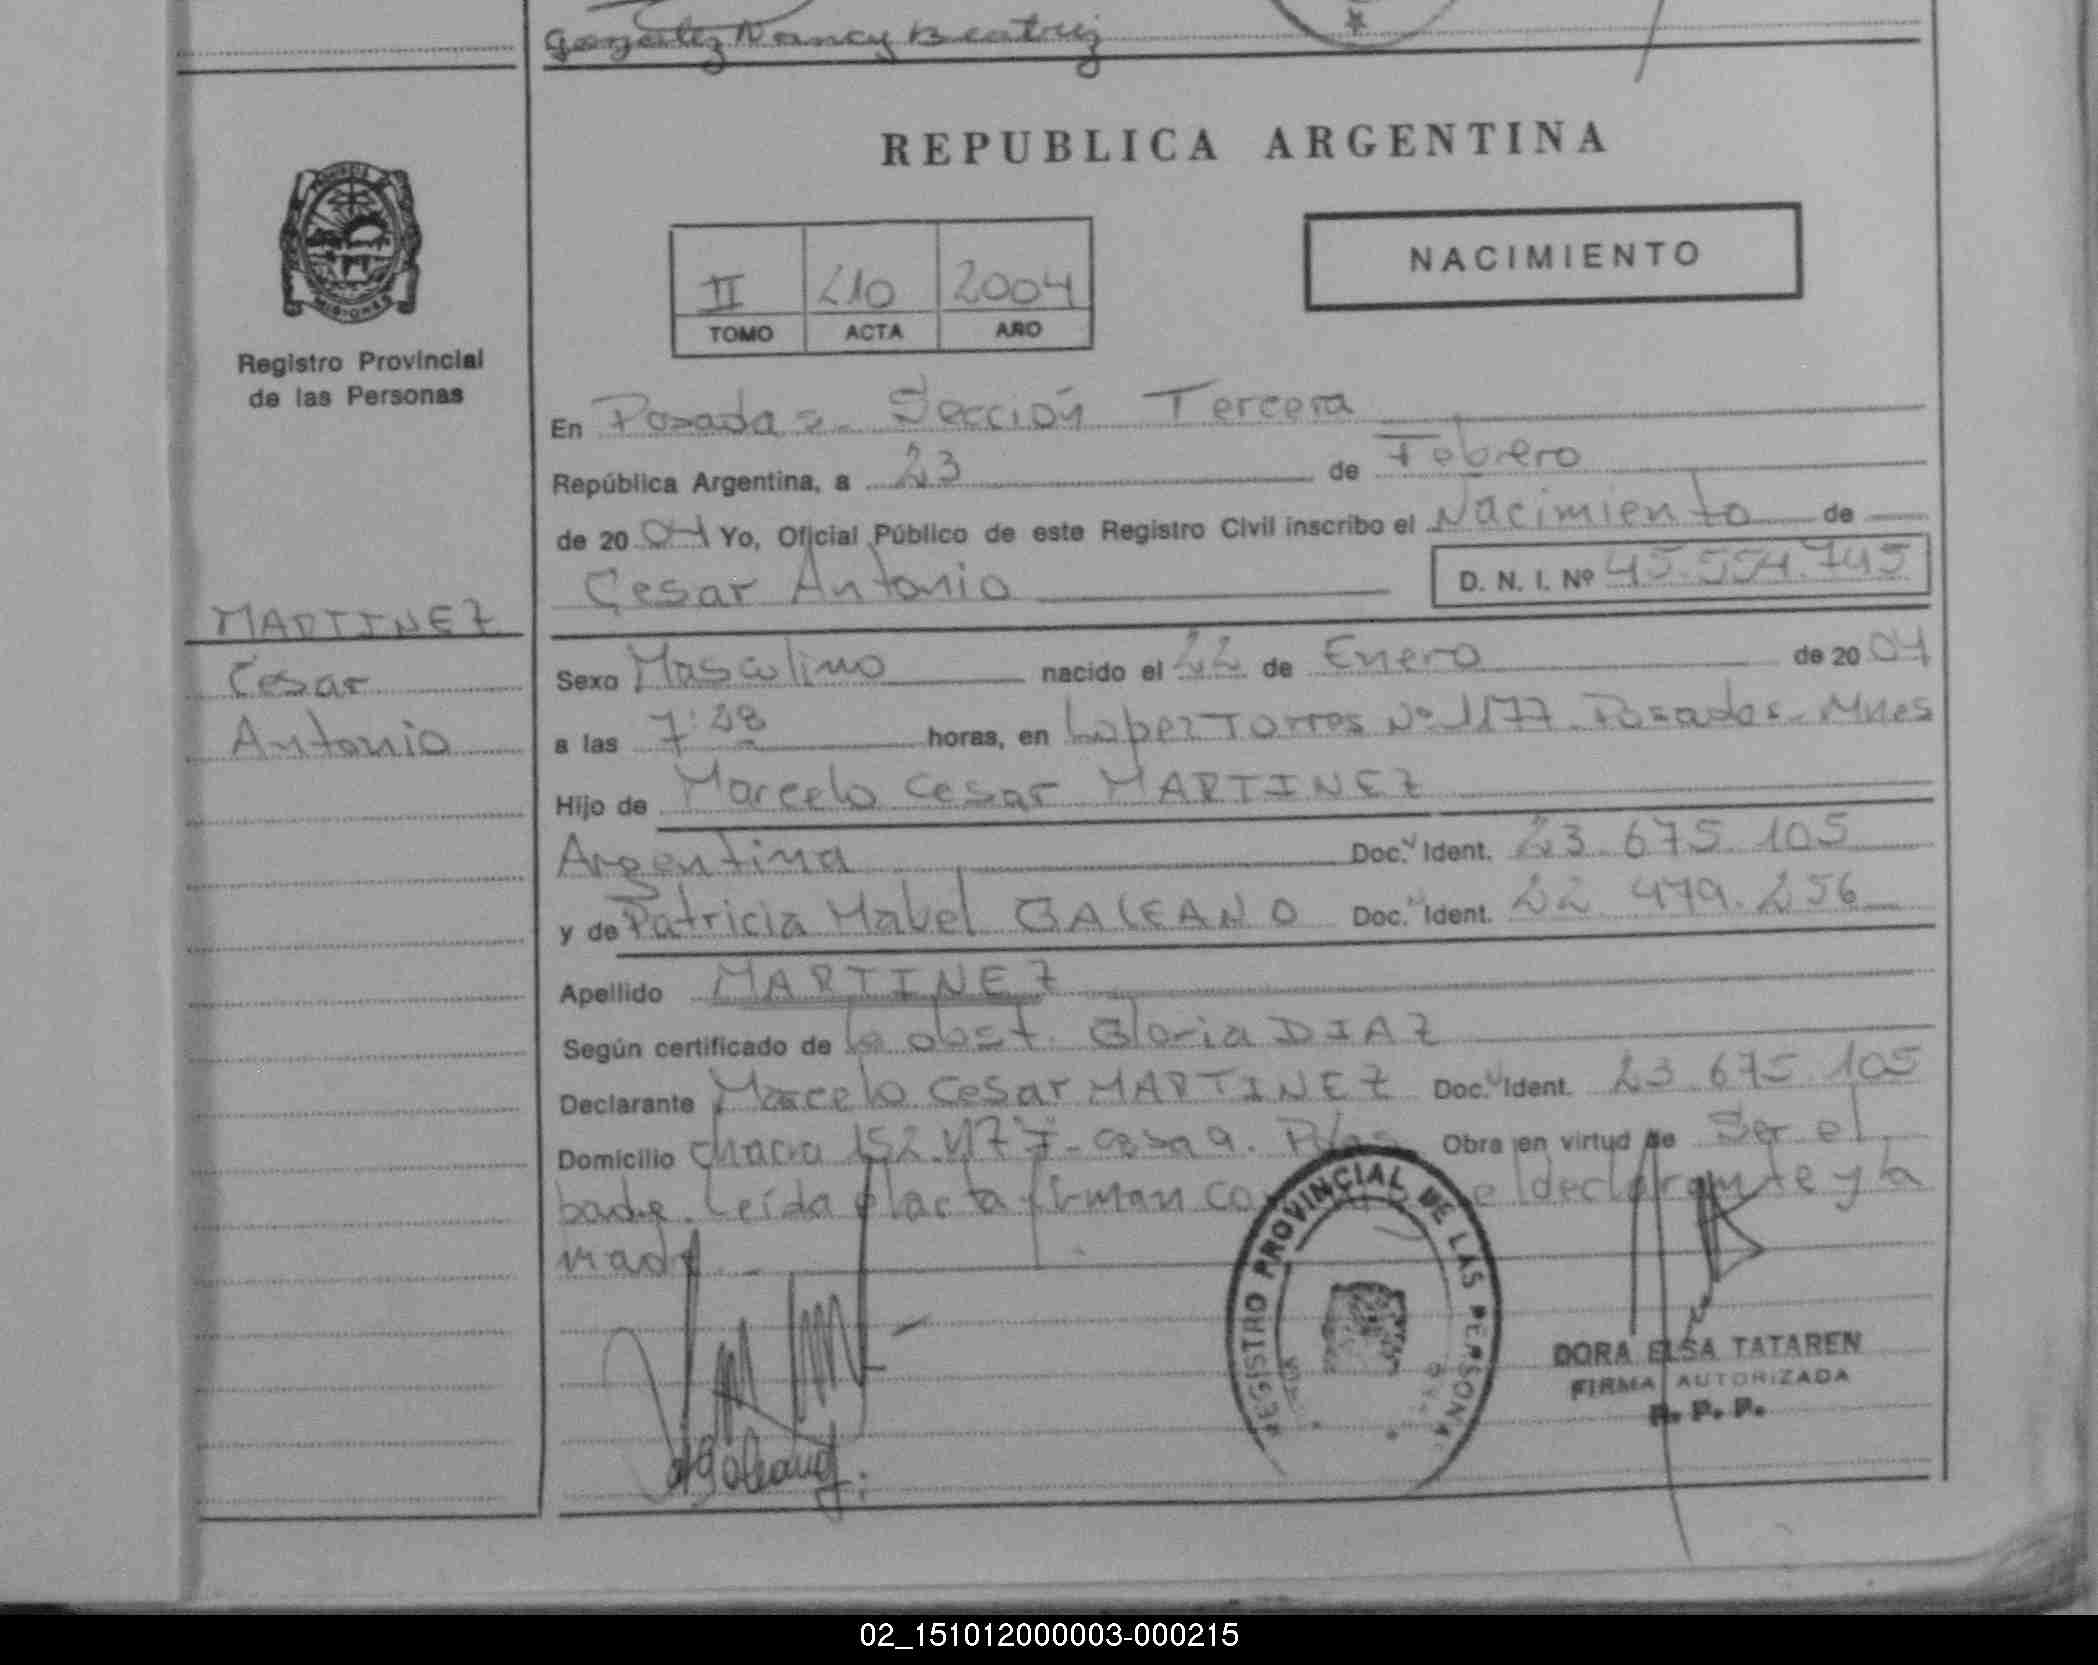 González Nancy Beatriz
REPUBLICA ARGENTINA
NACIMIENTO
II 210 2004
TOMO ACTA AÑO
PROVINCIA DE
MISIONES
Registro Provincial
de las Personas
En Posadas - Sección Tercera
República Argentina, a 23 de Febrero
de 2004 Yo, Oficial Público de este Registro Civil inscribo el Nacimiento de
Cesar Antonio D. N. I. Nº 45.554.745
MARTINEZ
Cesar
Antonio
Sexo Masculino nacido el 22 de Enero de 2004
a las 7:28 horas, en Lopez Torres Nº 1177 - Posadas - Mnes
Hijo de Marcelo Cesar MARTINEZ
Argentina Doc. Ident. 23.675.105
y de Patricia Mabel GALEANO Doc. Ident. 22.479.256
Apellido MARTINEZ
Según certificado de la obst. Gloria DIAZ
Declarante Marcelo Cesar MARTINEZ Doc. Ident. 23.675.105
Domicilio chacra 152 casa 9. Pdas Obra en virtud de Ser el
padre. Leída el acta firman el declarante y la
madre
REGISTRO PROVINCIAL DE LAS PERSONAS
DORA ELSA TATAREN
FIRMA AUTORIZADA
R. P. P.
02_151012000003-000215